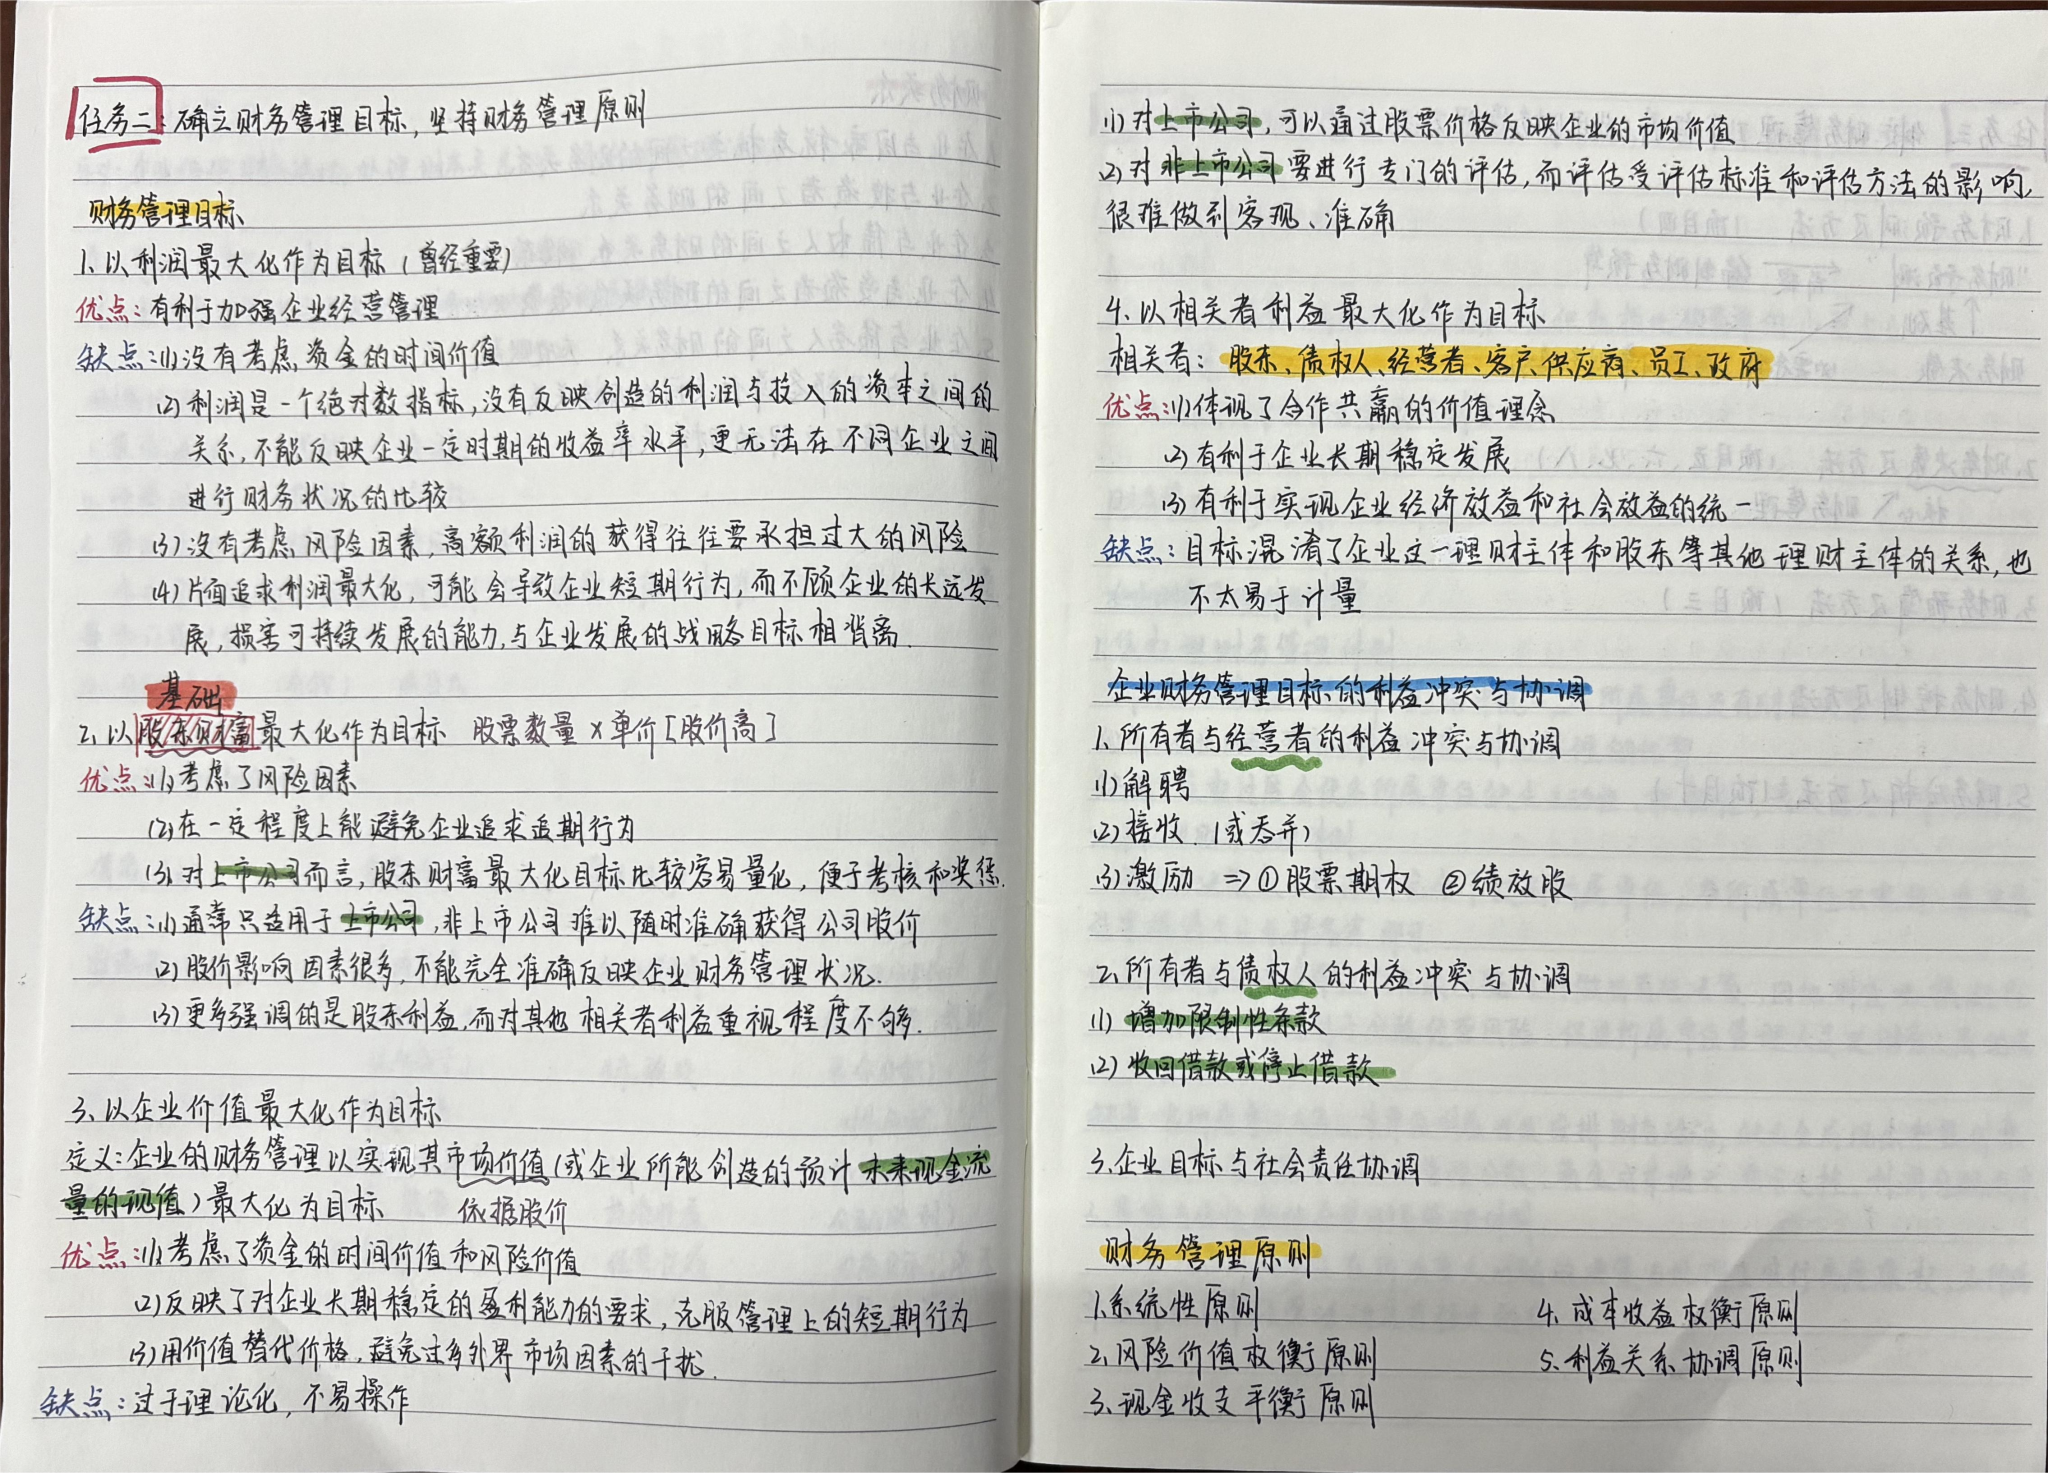 任务二:确立财务管理目标,坚持财务管理原则
财务管理目标
1、以利润最大化作为目标(曾经重要)
优点:有利于加强企业经营管理
缺点:(1)没有考虑资金的时间价值
(2)利润是一个绝对数指标,没有反映创造的利润与投入的资本之间的
关系,不能反映企业一定时期的收益率水平,更无法在不同企业之间
进行财务状况的比较
(3)没有考虑风险因素,高额利润的获得往往要承担过大的风险
(4)片面追求利润最大化,可能会导致企业短期行为,而不顾企业的长远发
展,损害可持续发展的能力,与企业发展的战略目标相背离.
基础
2、以股东财富最大化作为目标 股票数量×单价[股价高]
优点:(1)考虑了风险因素
(2)在一定程度上能避免企业追求追期行为
(3)对上市公司而言,股东财富最大化目标比较容易量化,便于考核和奖惩.
缺点:(1)通常只适用于上市公司,非上市公司难以随时准确获得公司股价
(2)股价影响因素很多,不能完全准确反映企业财务管理状况.
(3)更多强调的是股东利益,而对其他相关者利益重视程度不够.
3、以企业价值最大化作为目标
定义:企业的财务管理以实现其市场价值(或企业所能创造的预计未来现金流
量的现值)最大化为目标 依据股价
优点:(1)考虑了资金的时间价值和风险价值
(2)反映了对企业长期稳定的盈利能力的要求,克服管理上的短期行为
(3)用价值替代价格,避免过多外界市场因素的干扰.
缺点:过于理论化,不易操作
(1)对上市公司,可以通过股票价格反映企业的市场价值
(2)对非上市公司要进行专门的评估,而评估受评估标准和评估方法的影响,
很难做到客观、准确
4、以相关者利益最大化作为目标
相关者:股东、债权人、经营者、客户、供应商、员工、政府
优点:(1)体现了合作共赢的价值理念
(2)有利于企业长期稳定发展
(3)有利于实现企业经济效益和社会效益的统一
缺点:目标混淆了企业这一理财主体和股东等其他理财主体的关系,也
不太易于计量
企业财务管理目标的利益冲突与协调
1、所有者与经营者的利益冲突与协调
(1)解聘
(2)接收(或吞并)
(3)激励 ⇒①股票期权 ②绩效股
2、所有者与债权人的利益冲突与协调
(1)增加限制性条款
(2)收回借款或停止借款
3、企业目标与社会责任协调
财务管理原则
1、系统性原则 4、成本收益权衡原则
2、风险价值权衡原则 5、利益关系协调原则
3、现金收支平衡原则